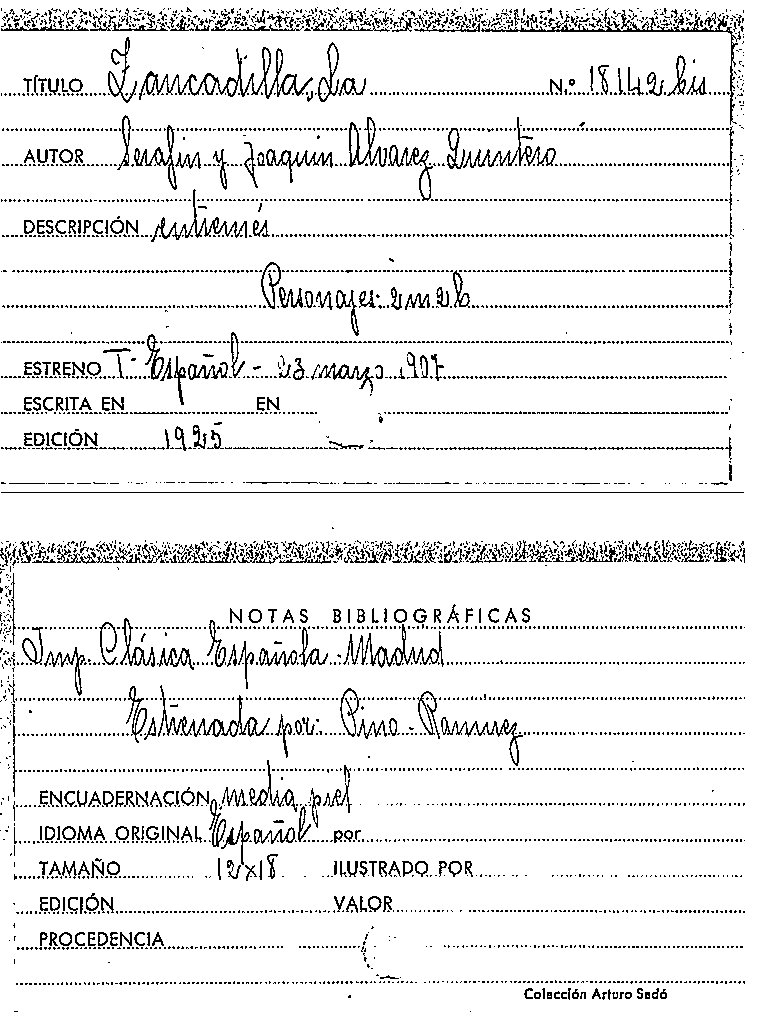 TÍTULO Zancadilla, La N.º 18142 bis
AUTOR Serafin y Joaquin Alvarez Quintero
DESCRIPCIÓN entremés
Personajes 2m 2h
ESTRENO T. Español - 23 marzo 1907
ESCRITA EN EN
EDICIÓN 1925
NOTAS BIBLIOGRÁFICAS
Imp. Clásica Española Madrid
Estrenada por: Pino - Ramirez
ENCUADERNACIÓN media piel
IDIOMA ORIGINAL Español por
TAMAÑO 12x18 ILUSTRADO POR
EDICIÓN VALOR
PROCEDENCIA
Colección Arturo Sedó